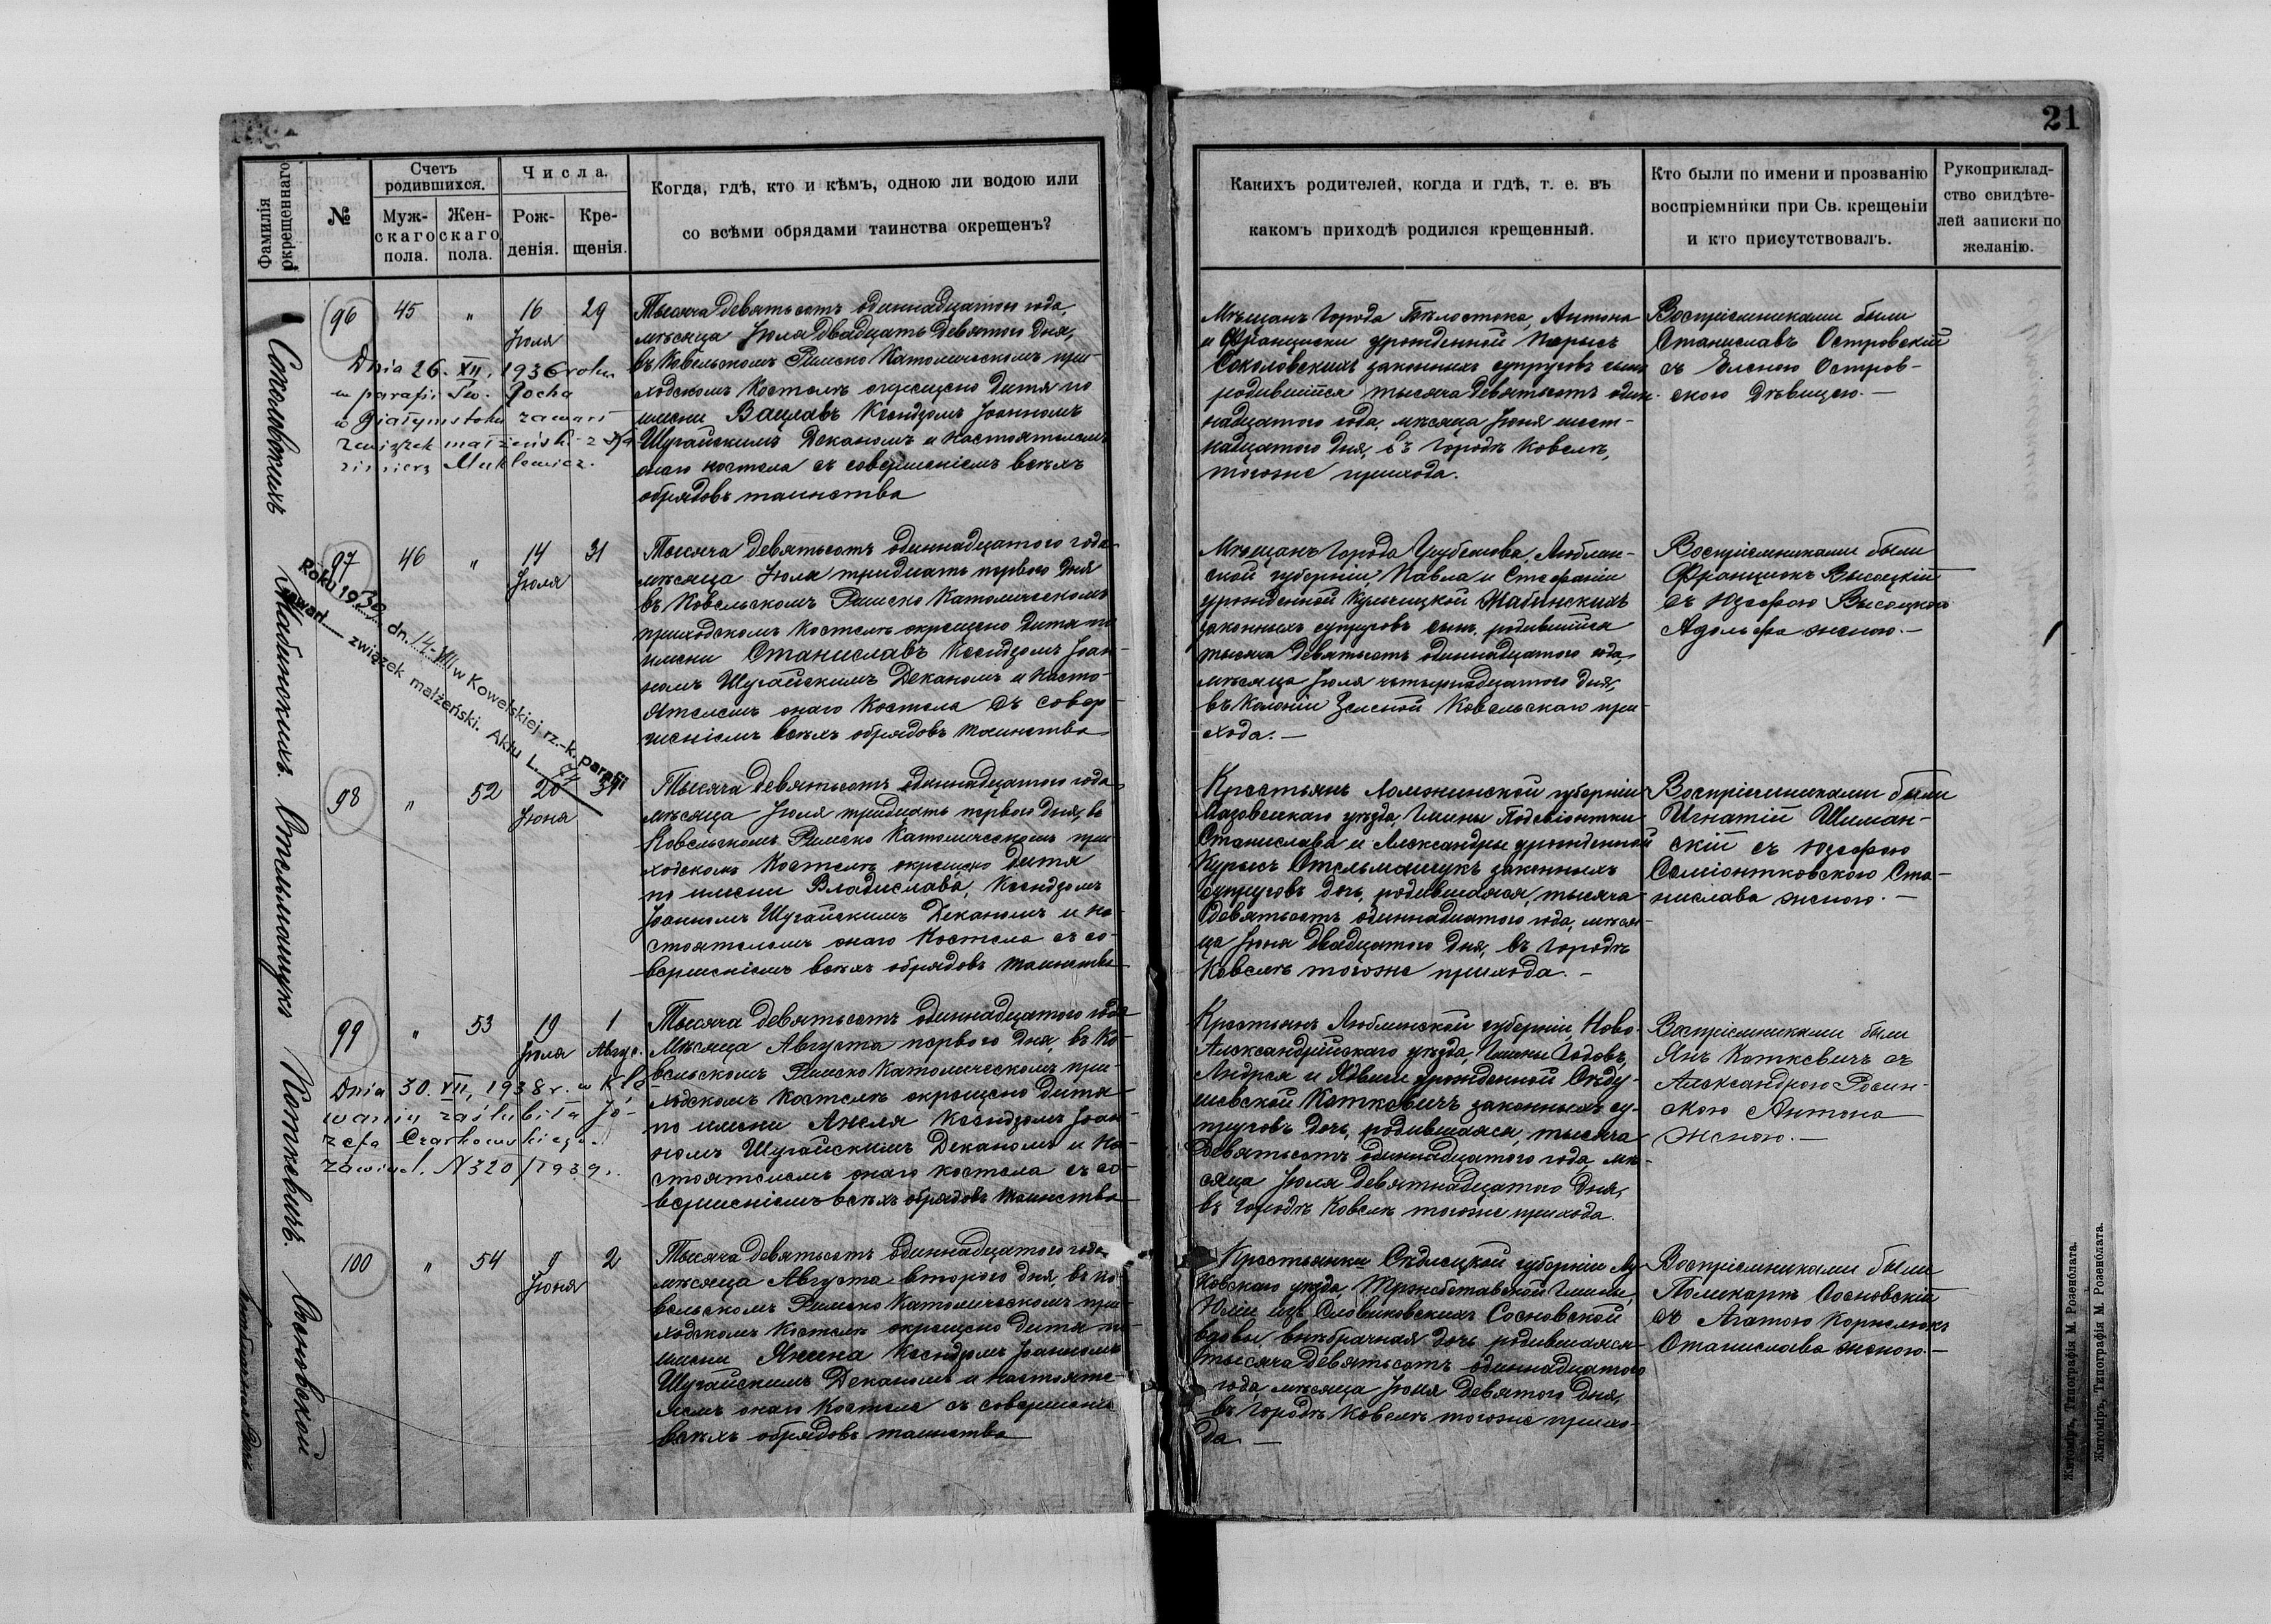 21
Фамилія
окрещеннаго
№
Счетъ
родившихся.
Муж-
скаго
пола.
Жен-
скаго
пола.
Числа.
Рож-
денія.
Кре-
щенія.
Когда, гдѣ, кто и кѣмъ, одною ли водою или
со всѣми обрядами таинства окрещенъ?
Какихъ родителей, когда и гдѣ, т. е. въ
какомъ приходѣ родился крещенный.
Кто были по имени и прозванію
воспріемники при Св. крещеніи
и кто присутствовалъ.
Рукоприклад-
ство свидѣте-
лей записки по
желанію.
Соколовскихъ
96
45
"
16
Іюля
29
Dnia 26. XII. 1936 roku
w parafii Św. Rocha
w Białymstoku zawarł
związek małżeński z
Muklewicz.
Тысяча девятьсотъ одиннадцатого года,
мѣсяца Іюля двадцать девятого дня,
въ Ковельскомъ Римско Католическомъ при-
ходскомъ Костелѣ окрещено дитя по
имени Вацлавъ Ксендзомъ Іоанномъ
Шугайскимъ Деканомъ и настоятелемъ
онаго костела съ совершеніемъ всѣхъ
обрядовъ таинства
Мѣщанъ города Бѣлостока, Антона
и Франциски урожденной Парысъ
Соколовскихъ законныхъ супруговъ сынъ
родившійся тысяча девятьсотъ один-
надцатого года, мѣсяца Іюня шест-
надцатого дня, въ городѣ Ковелѣ,
тогоже прихода.
Воспріемниками были
Станиславъ Островскій
съ Еленою Остров-
скою дѣвицею. —
Жабинскихъ.
97
46
"
14
Іюля
31
Roku 1930 dn. 14-VIII w Kowelskiej rz.-k. parafii
zawarł związek małżeński. Aktu L. 74
Тысяча девятьсотъ одиннадцатого года
мѣсяца Іюля тридцать первого дня
въ Ковельскомъ Римско Католическомъ
приходскомъ Костелѣ окрещено дитя по
имени Станиславъ Ксендзомъ Іоан-
номъ Шугайскимъ Деканомъ и насто-
ятелемъ онаго Костела съ совер-
шеніемъ всѣхъ обрядовъ таинства
Мѣщанъ города Грубешова, Люблин-
ской губерніи, Павла и Стефаніи
урожденной Жабинскихъ
законныхъ супруговъ сынъ, родившійся
тысяча девятьсотъ одиннадцатого года,
мѣсяца Іюля четырнадцатого дня,
въ Колоніи Зеленой Ковельскаго при-
хода. —
Воспріемниками были
Францискъ Высоцкій
съ Юзефою Высоцкою
Адольфа женою. —
Стельмащукъ
98
"
52
20
Іюня
31
Тысяча девятьсотъ одиннадцатого года
мѣсяца Іюля тридцать первого дня, въ
Ковельскомъ Римско Католическомъ при-
ходскомъ Костелѣ окрещено дитя
по имени Владислава, Ксендзомъ
Іоанномъ Шугайскимъ Деканомъ и на-
стоятелемъ онаго Костела съ со-
вершеніемъ всѣхъ обрядовъ таинства
Крестьянъ Ломжинской губерніи
Мазовецкаго уѣзда, Гмины
Станислава и Александры урожденной
Курысъ Стельмащукъ законныхъ
супруговъ дочь, родившаяся, тысяча
девятьсотъ одиннадцатого года, мѣся-
ца Іюня двадцатого дня, въ городѣ
Ковелѣ тогоже прихода. —
Воспріемниками были
Игнатій Шиман-
скій съ Юзефою
Семіонтковскою Ста-
нислава женою. —
Коткевичъ.
99
"
53
19
Іюля
1
Август.
Dnia 30. VII. 1938 r. w
zaślubiła Jó-
zefa Czarkowskiego.
zawiad. N 320/1939.
Тысяча девятьсотъ одиннадцатого года
Мѣсяца Августа первого дня, въ Ко-
вельскомъ Римско Католическомъ при-
ходскомъ Костелѣ окрещено дитя
по имени Анеля Ксендзомъ Іоан-
номъ Шугайскимъ Деканомъ и на-
стоятелемъ онаго костела съ со-
вершеніемъ всѣхъ обрядовъ таинства
Крестьянъ Люблинской губерніи, Ново-
Александрійскаго уѣзда, Гмины Годовъ,
Андрея и Ядвиги урожденной
Коткевичъ законныхъ су-
пруговъ дочь, родившаяся, тысяча
девятьсотъ одиннадцатого года, мѣ-
сяца Іюля девятнадцатого дня,
въ городѣ Ковелѣ тогоже прихода.
Воспріемниками были
Янъ Коткевичъ съ
Александрою Росин-
скою Антона
женою. —
Сосновской
100
"
54
9
Іюня
2
Тысяча девятьсотъ одиннадцатого года
мѣсяца Августа второго дня, въ Ко-
вельскомъ Римско Католическомъ при-
ходскомъ Костелѣ окрещено дитя по
имени Янина Ксендзомъ Іоанномъ
Шугайскимъ Деканомъ и настояте-
лемъ онаго Костела съ совершеніемъ
всѣхъ обрядовъ таинства
Крестьянки Сѣдлецкой губерніи Лу-
ковскаго уѣзда, Гмины,
Юліи изъ Словиковскихъ Сосновской
вдовы, внѣбрачная дочь родившаяся
тысяча девятьсотъ одиннадцатого
года мѣсяца Іюня девятого дня,
въ городѣ Ковелѣ тогоже прихо-
да —
Воспріемниками были
Поликарпъ Сосновскій
съ Агатою Корнелюкъ
Станислава женою. —
Житоміръ, Типографія М. Розенблата.
Житоміръ, Типографія М. Розенблата.